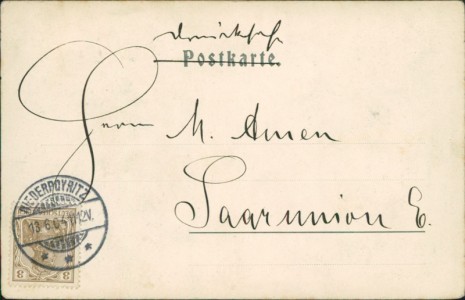 Drucksache
Postkarte.
Herrn M. Amen
Saarunion E.
NIEDERPOYRITZ
13.6.05. 11-12V.
3 3